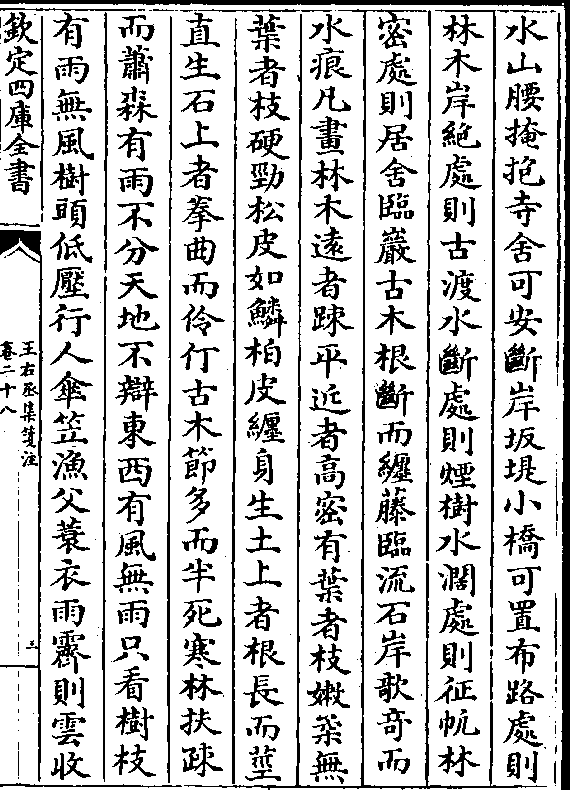 水山腰掩抱寺舍可安斷岸坂堤小橋可置布路處則
林木岸絶處則古渡水斷處則煙樹水濶處則征帆林
密處則居舍臨巖古木根斷而纒藤臨流石岸歌竒而
水痕凡畫林木逺者踈平近者高密有葉者枝嫩葉無
葉者枝硬勁松皮如鱗柏皮纒身生土上者根長而莖
直生石上者拳曲而伶仃古木節多而半死寒林扶疎
而蕭森有雨不分天地不辯東西有風無雨只看樹枝
有雨無風樹頭低壓行人傘笠漁父蓑衣雨霽則雲收
欽定四庫全書
王右丞集箋注
卷二十八
三